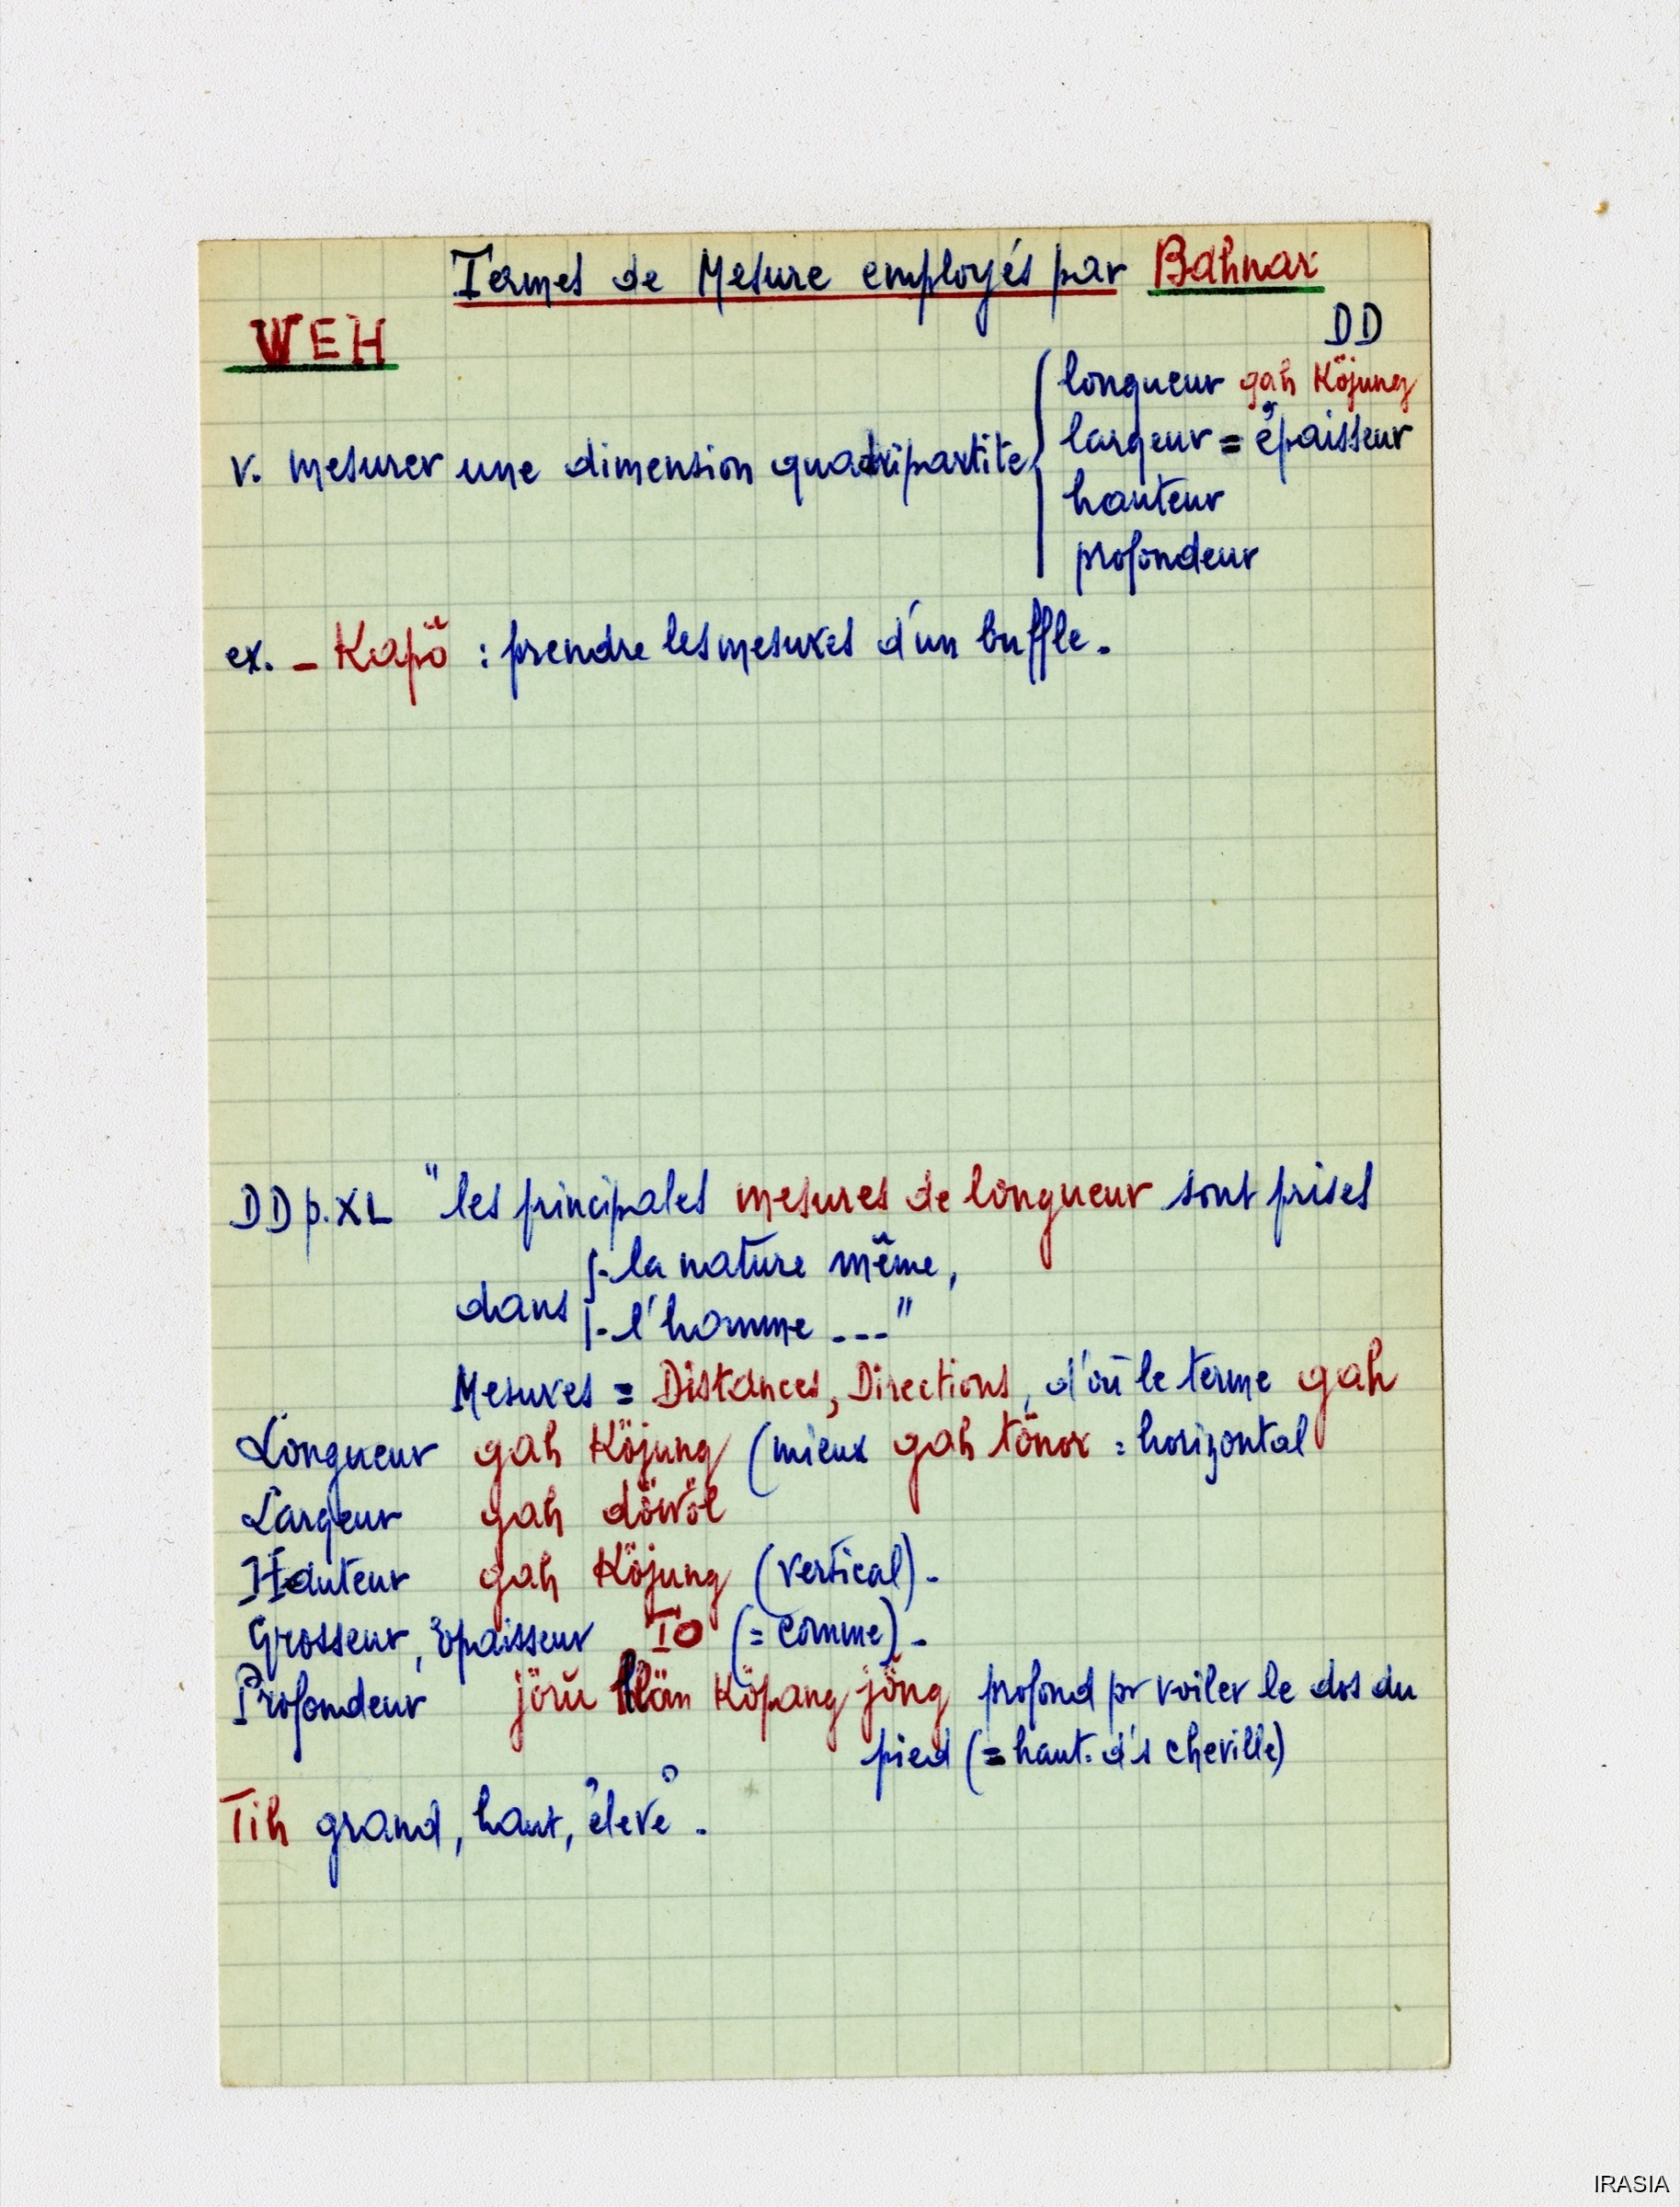 Termes de Mesure employés par Bahnar
DD
WEH
v. mesurer une dimension quadripartite
longueur gah Köjung
largeur = épaisseur
hauteur
profondeur
ex. – Kapô : prendre les mesures d'un buffle.
DD p. XL "les principales mesures de longueur sont prises
dans
- la nature même,
- l'homme ---"
Mesures = Distances, Directions, d'où le terme gah
Longueur gah Köjung (mieux gah tönor : horizontal
Largeur gah döwöl
Hauteur gah Köjung (vertical).
Grosseur, Epaisseur To (= comme).
Profondeur jöru Köpang jöng profond pr voiler le dos du
pied (= haut. d's cheville)
Tih grand, haut, élevé.
IRASIA